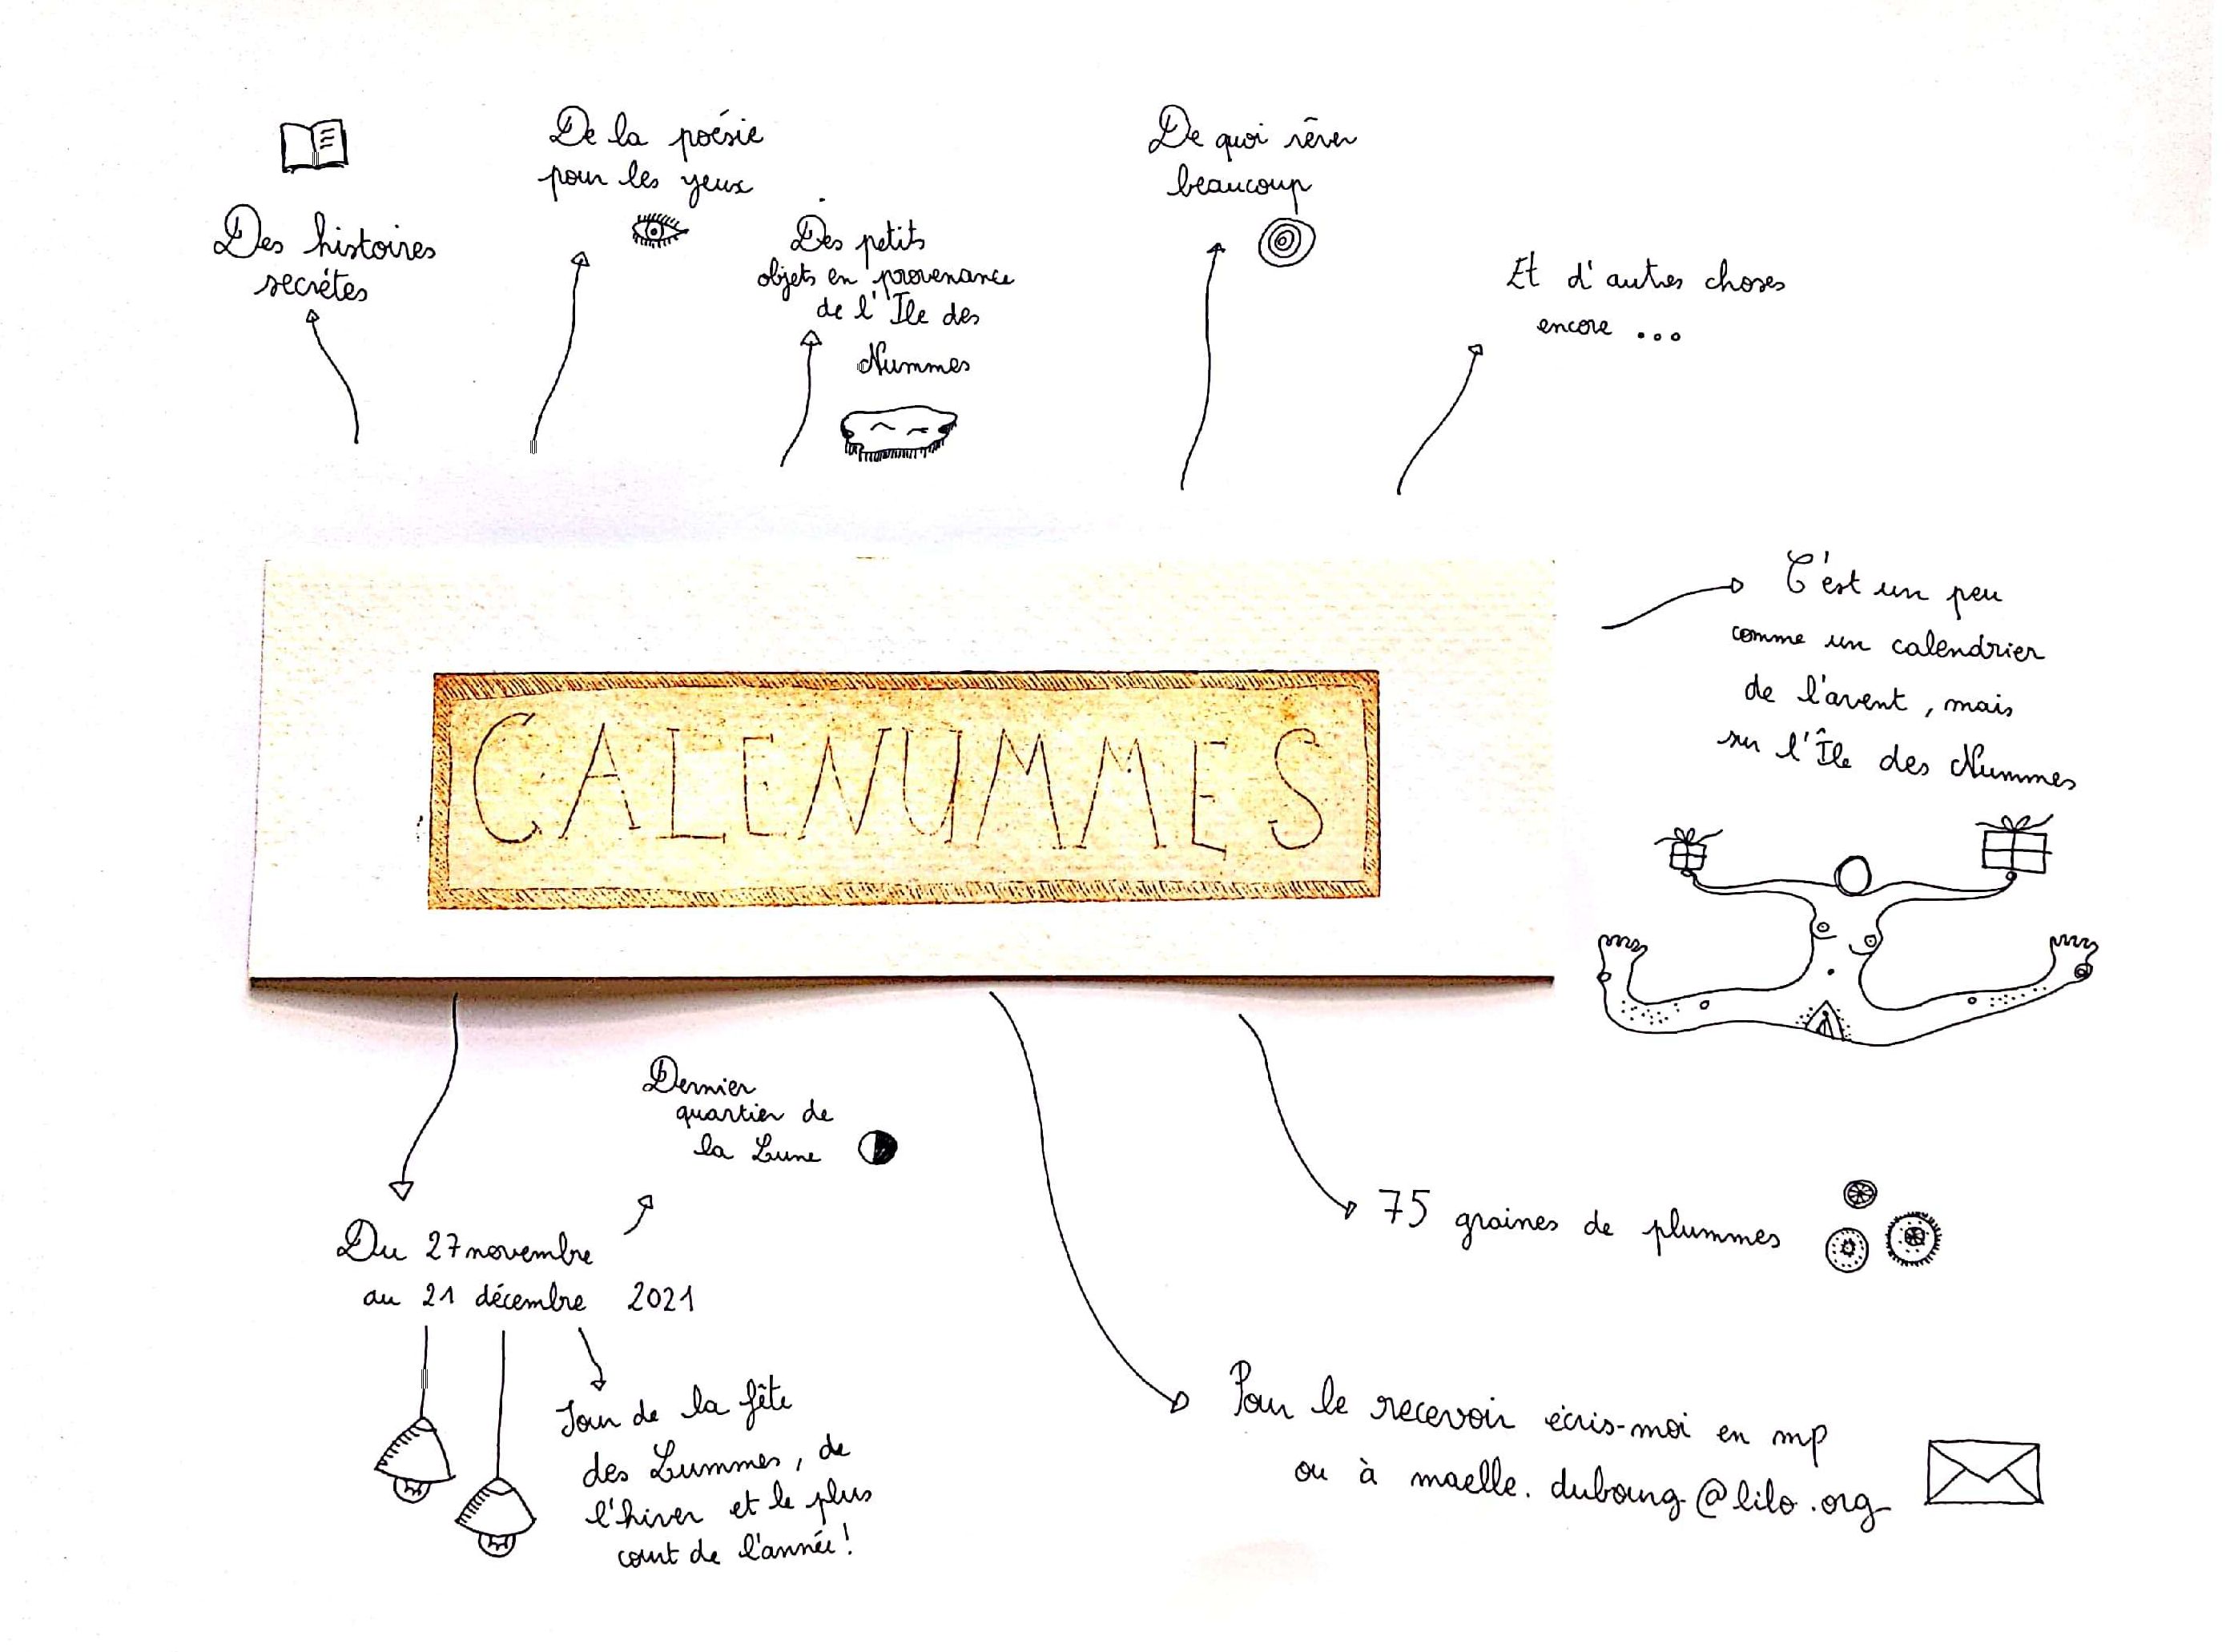 Des histoires
secrètes
De la poésie
pour les yeux
Des petits
objets en provenance
de l'Ile des
Nummes
De quoi rêver
beaucoup
Et d'autres choses
encore ...
CALENUMMES
C'est un peu
comme un calendrier
de l'avent, mais
sur l'Île des Nummes
Dernier
quartier de
la Lune
Du 27 novembre
au 21 décembre 2021
Jour de la fête
des Lummes, de
l'hiver et le plus
court de l'année!
75 graines de plummes
Pour le recevoir écris-moi en mp
ou à maelle.dubourg@lilo.org